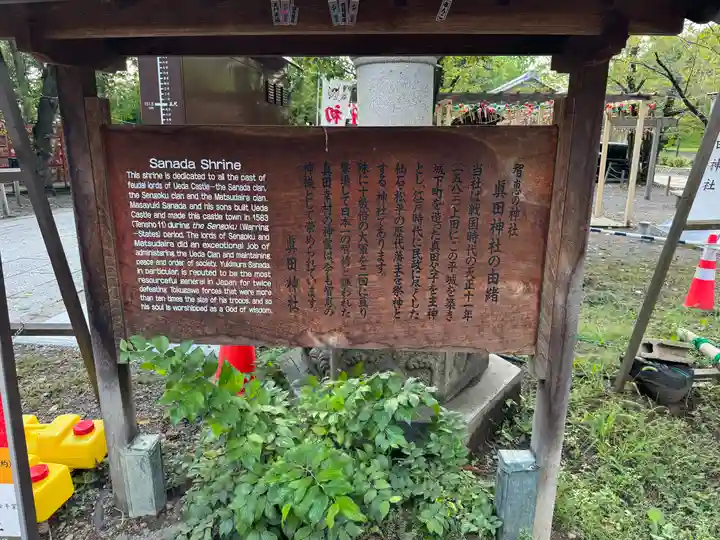 Sanada Shrine
This shrine is dedicated to all the cast of
feudal lords of Ueda Castle—the Sanada clan,
the Sensoku clan and the Matsudaira clan.
Masayuki Sanada and his sons built Ueda
Castle and made this castle town in 1583
(Tensho 11) during the Sensoku (Warring
-States) period. The lords of Sensoku and
Matsudaira did an exceptional job of
administering the Ueda Clan and maintaining
peace and order of society. Yukimura Sanada
in particular, is reputed to be the most
resourceful general in Japan for twice
defeating Tokugawa forces that were more
than ten times the size of his troops, and so
his soul is worshipped as a God of wisdom.
智恵の神社
眞田神社の由緒
当社は戦国時代の天正十一年
（一五八三）上田にこの平城を築き
城下町を造った真田父子を主神
とし、江戸時代に民政に尽した
仙石・松平の歴代藩主を祭神と
する神社であります。
眞田神社
田神社
初